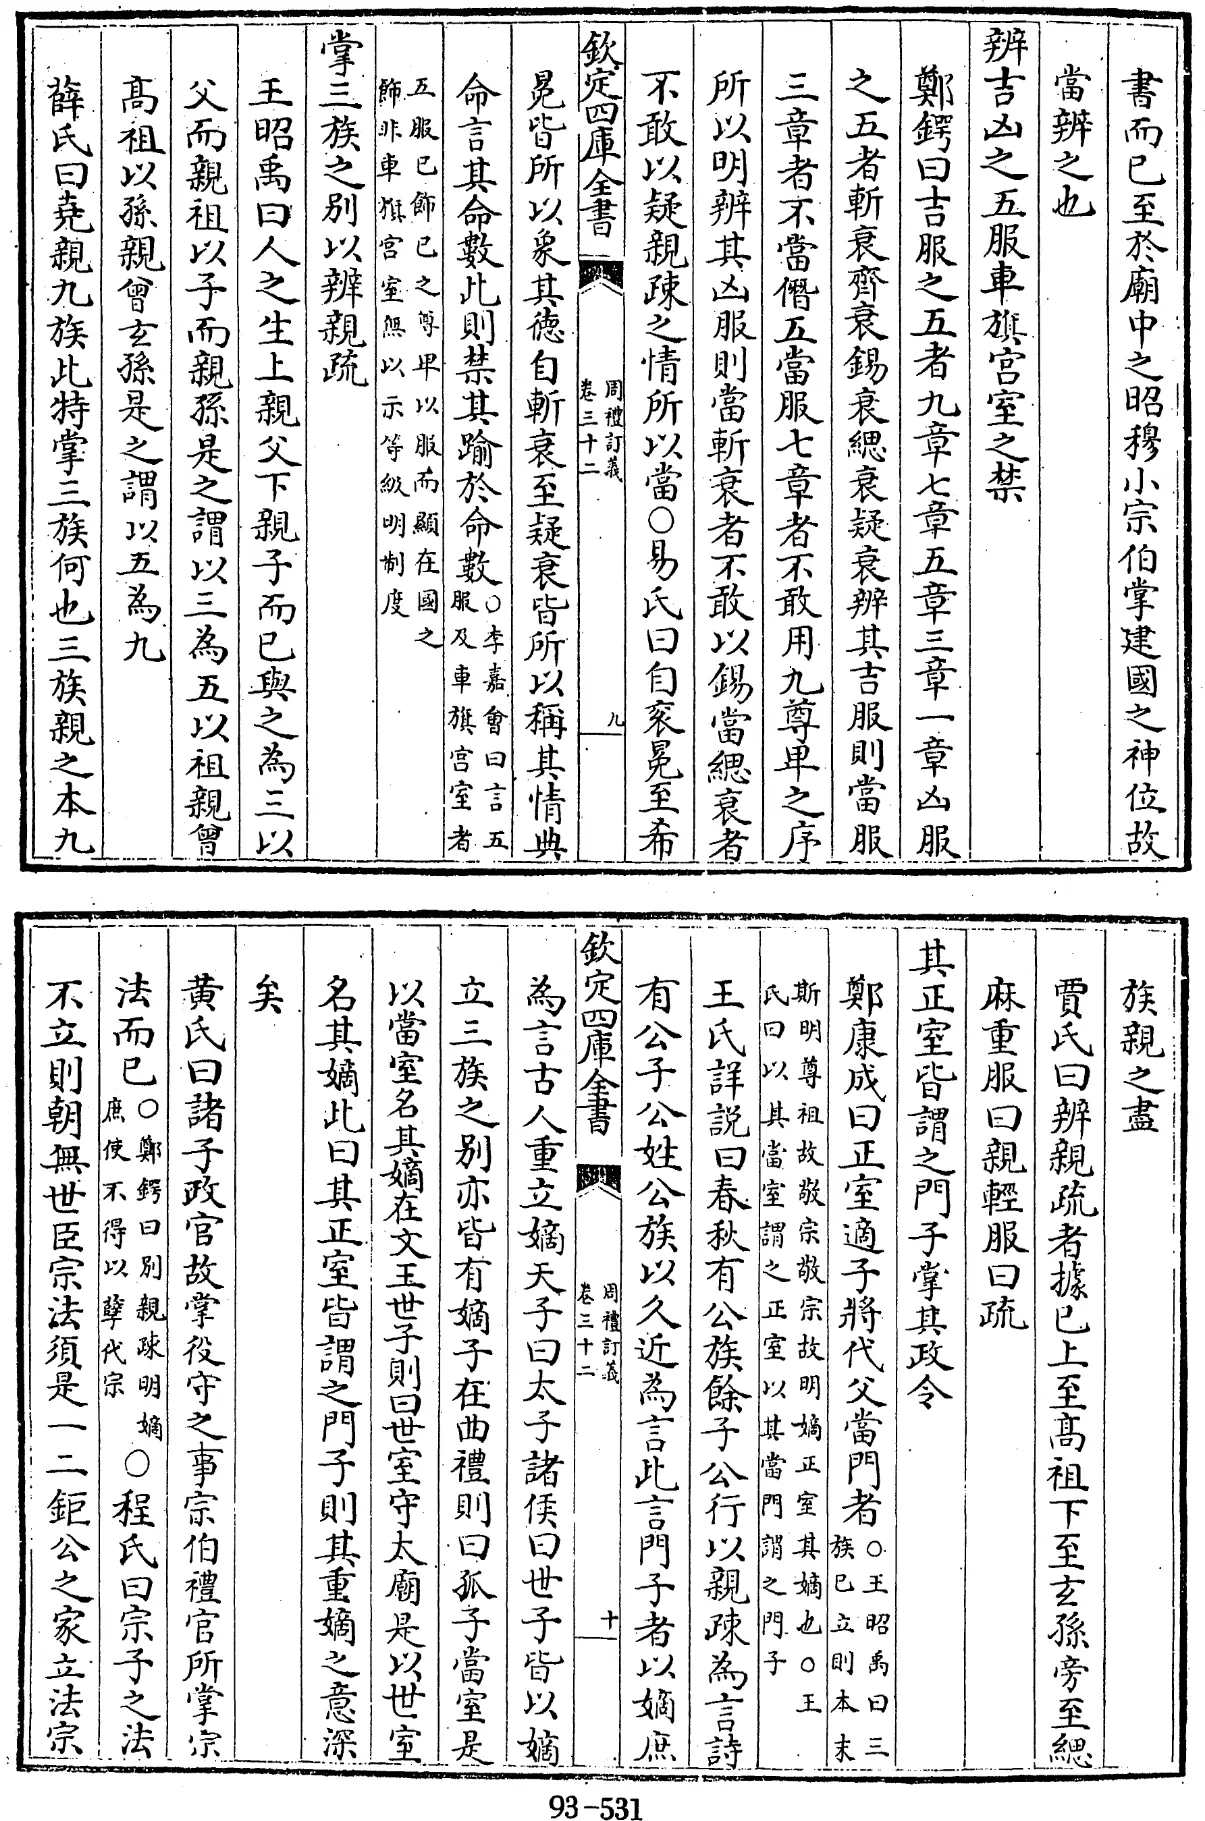 書而已至於廟中之昭穆小宗伯掌建國之神位故
當辨之也
辨吉凶之五服車旗宮室之禁
鄭鍔曰吉服之五者九章七章五章三章一章凶服
之五者斬衰齊衰錫衰緦衰疑衰辨其吉服則當服
三章者不當僭五當服七章者不敢用九尊卑之序
所以明辨其凶服則當斬衰者不敢以錫當緦衰者
不敢以疑親疎之情所以當○易氏曰自衮冕至希
欽定四庫全書
周禮訂義
卷三十二
九
冕皆所以象其德自斬衰至疑衰皆所以稱其情典
命言其命數此則禁其踰於命數○李嘉會曰言五
服及車旗宮室者
五服已飾已之尊卑以服而顯在國之
飾非車旗宮室無以示等級明制度
掌三族之別以辨親疏
王昭禹曰人之生上親父下親子而已與之為三以
父而親祖以子而親孫是之謂以三為五以祖親曾
高祖以孫親曾玄孫是之謂以五為九
薛氏曰堯親九族此特掌三族何也三族親之本九
族親之盡
賈氏曰辨親疏者據已上至高祖下至玄孫旁至緦
麻重服曰親輕服曰疏
其正室皆謂之門子掌其政令
鄭康成曰正室適子將代父當門者○王昭禹曰三
族已立則本末
斯明尊祖故敬宗敬宗故明嫡正室其嫡也○王
氏曰以其當室謂之正室以其當門謂之門子
王氏詳說曰春秋有公族餘子公行以親疎為言詩
有公子公姓公族以久近為言此言門子者以嫡庶
欽定四庫全書
周禮訂義
卷三十二
十
為言古人重立嫡天子曰太子諸侯曰世子皆以嫡
立三族之別亦皆有嫡子在曲禮則曰孤子當室是
以當室名其嫡在文王世子則曰世室守太廟是以世室
名其嫡此曰其正室皆謂之門子則其重嫡之意深
矣
黃氏曰諸子政官故掌役守之事宗伯禮官所掌宗
法而已○鄭鍔曰別親疎明嫡
庶使不得以孽代宗
○程氏曰宗子之法
不立則朝無世臣宗法須是一二鉅公之家立法宗
93-531